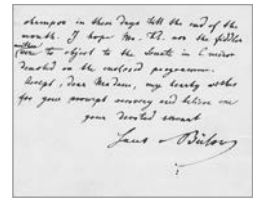 in these days till the end of the
month. I hope Mr. H. nor the fiddler
to object to the Sonata in C minor
denoted on the enclosed programme.
Accept, dear Madam, my hearty wishes
for your prompt recovery and believe me
your devoted servant
Hans v Bülow